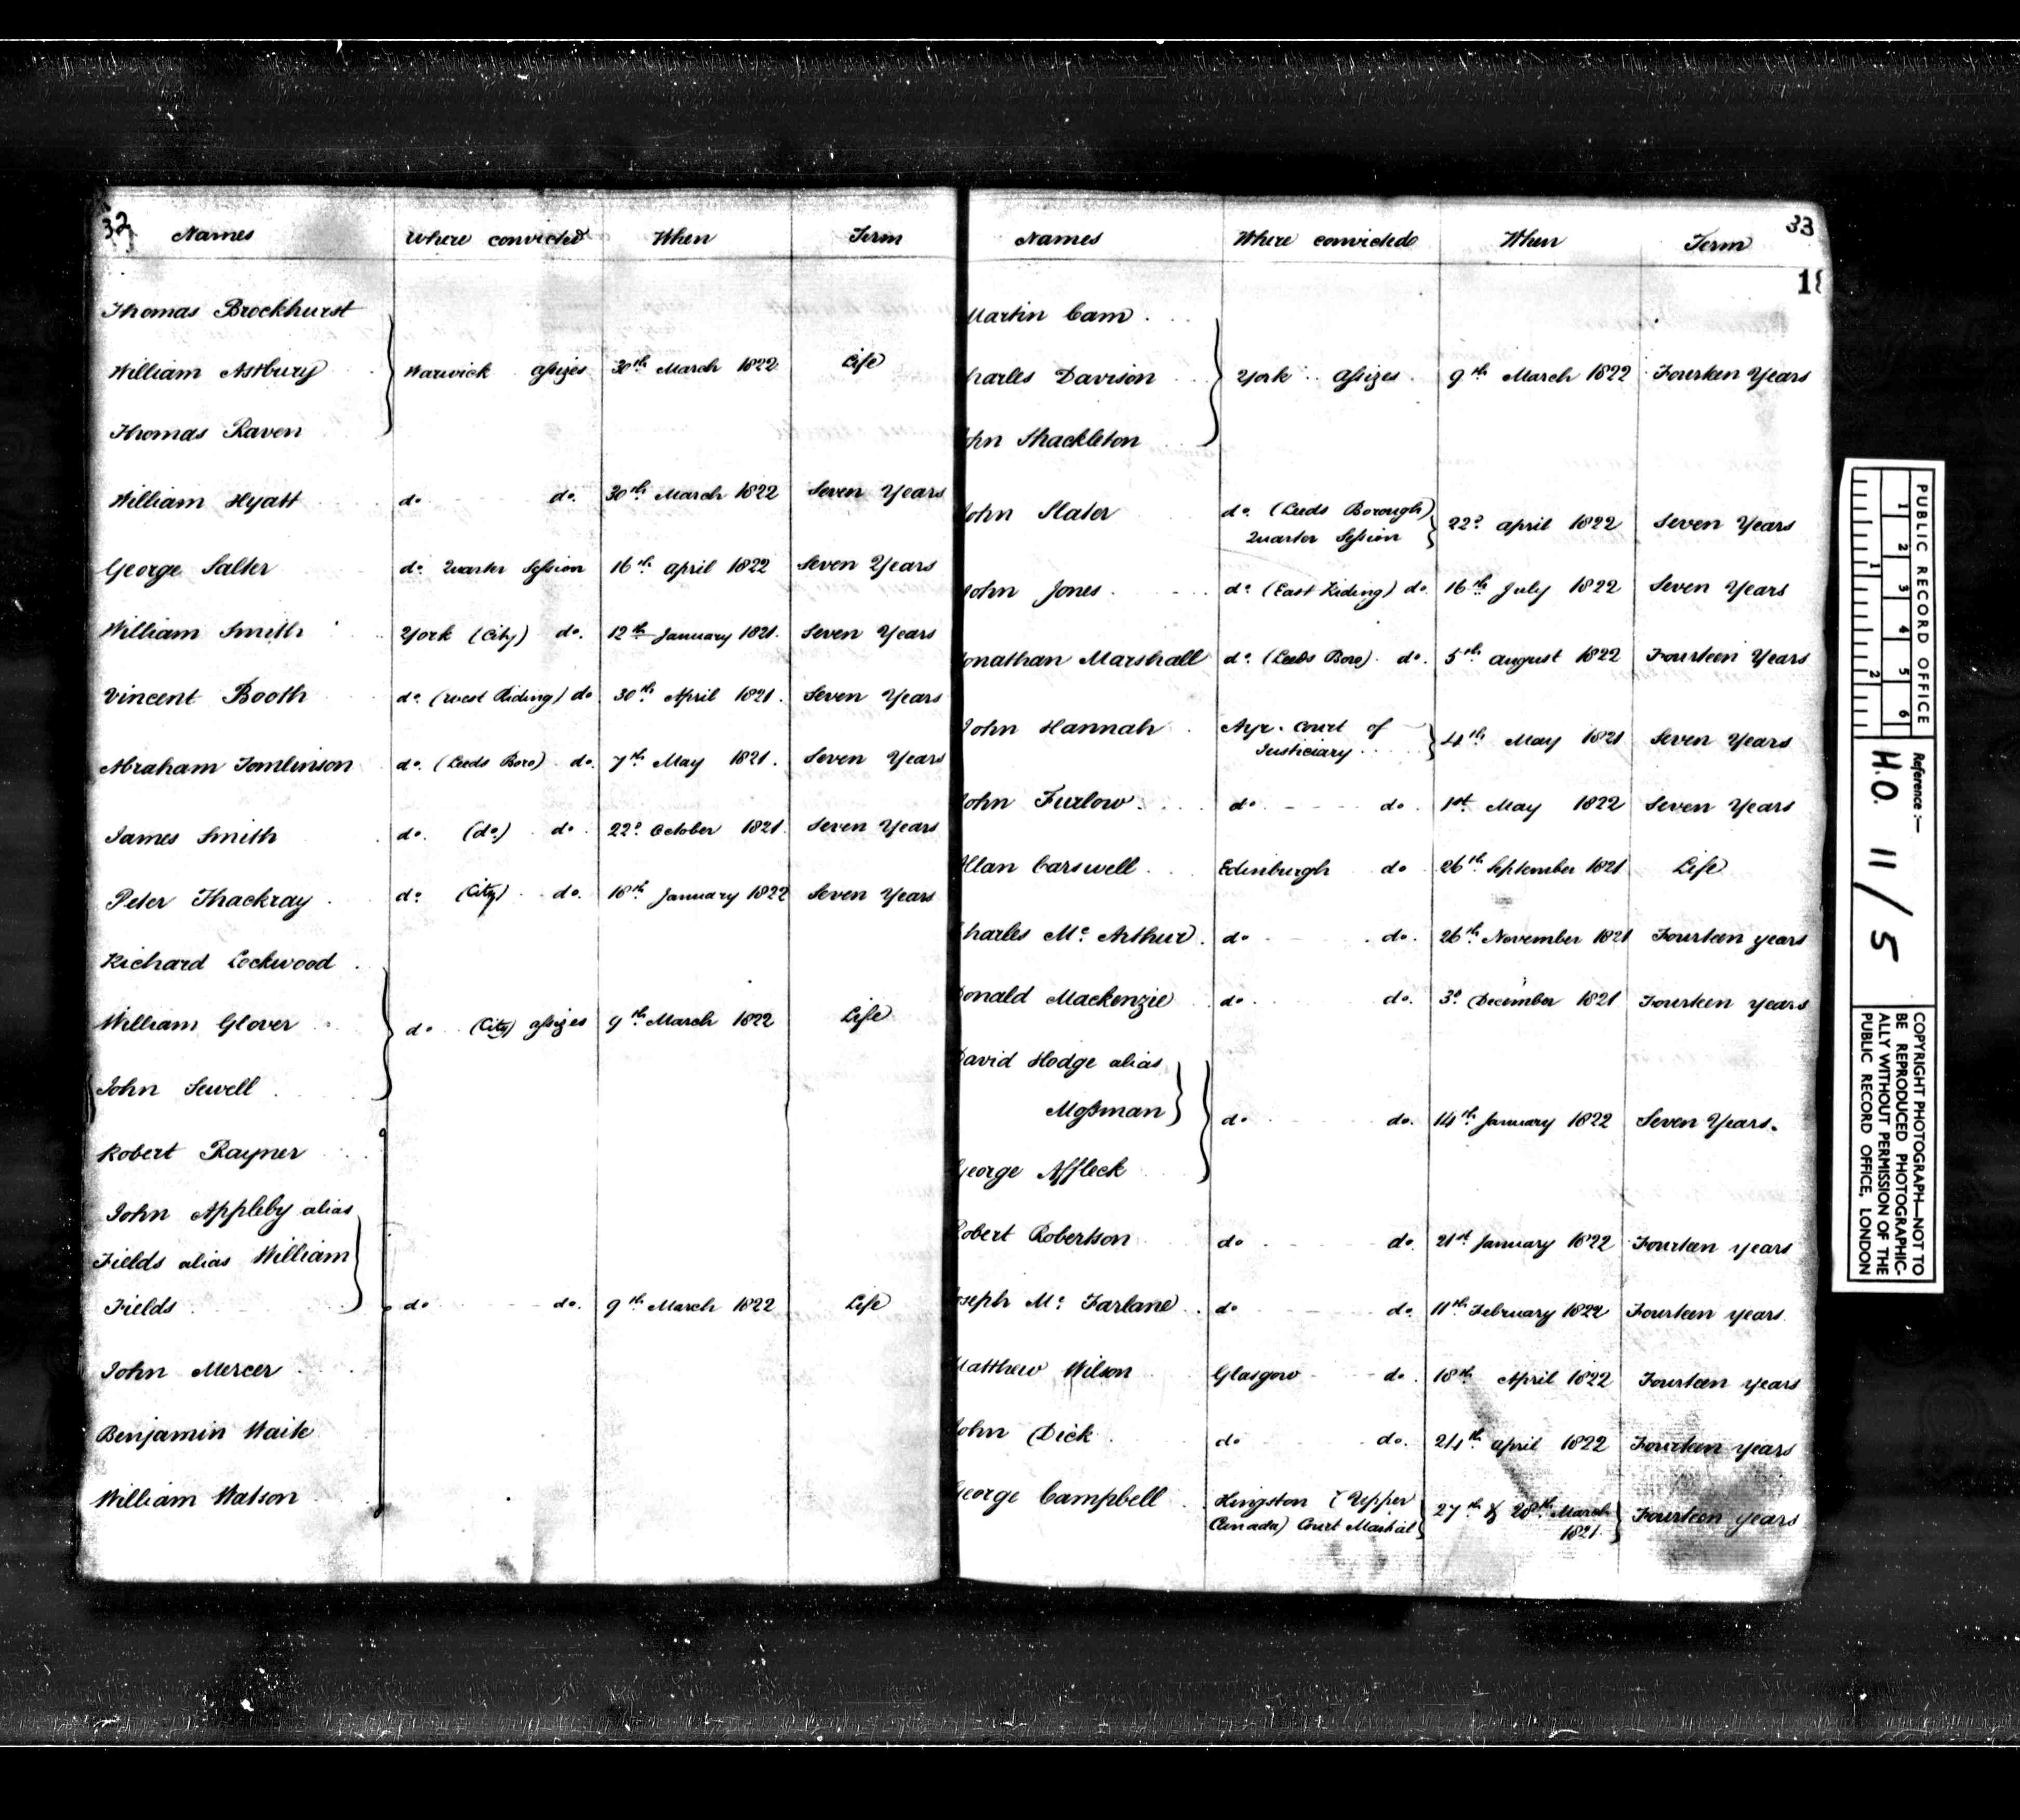 32
Names Where convicted When Term
Thomas Brockhurst
William Astbury Warwick assizes 30th March 1822 Life
Thomas Raven
William Hyatt do. do. 30th March 1822 Seven Years
George Salter do. Quarter Session 16th april 1822 Seven Years
William Smith York (City) do. 12th January 1821. Seven Years
Vincent Booth do. (West Riding) do 30th April 1821. Seven Years
Abraham Tomlinson do. (Leeds Boro) do. 7th May 1821. Seven Years
James Smith do. (do.) do. 22d October 1821. Seven Years
Peter Thackray do. (City) do. 18th January 1822 Seven Years
Richard Lockwood
William Glover do. (City) assizes 9th March 1822 Life
John Sewell
Robert Rayner
John Appleby alias
Fields alias William
Fields do. do. 9th March 1822 Life
John Mercer
Benjamin Waite
William Watson
33
18
Names Where convicted When Term
Martin Cam
Charles Davison York assizes 9th March 1822 Fourteen Years
John Shackleton
John Slater do. (Leeds Borough) Quarter Session 22d april 1822 Seven Years
John Jones do. (East Riding) do. 16th July 1822 Seven Years
Jonathan Marshall do. (Leeds Boro) do. 5th august 1822 Fourteen Years
John Hannah Ayr. Court of Justiciary 4th May 1821 Seven Years
John Furlow do. do. 1st May 1822 Seven Years
Allan Carswell Edinburgh do. 26th September 1821 Life
Charles Mc. Arthur do. do. 26th November 1821 Fourteen years
Donald Mackenzie do. do. 3d December 1821 Fourteen years
David Hodge alias
Mossman do. do. 14th January 1822 Seven Years.
George Affleck
Robert Robertson do. do. 21st January 1822 Fourteen years
Joseph Mc. Farlane do. do. 11th February 1822 Fourteen years
Matthew Wilson Glasgow do. 18th April 1822 Fourteen years
John Dick do. do. 24th april 1822 Fourteen years
George Campbell Kingston (Upper Canada) Court Martial 27th & 28th March 1821. Fourteen years
PUBLIC RECORD OFFICE
1 2 3 4 5 6
1 2
Reference :-
H.O. 11/5
COPYRIGHT PHOTOGRAPH—NOT TO
BE REPRODUCED PHOTOGRAPHIC-
ALLY WITHOUT PERMISSION OF THE
PUBLIC RECORD OFFICE, LONDON